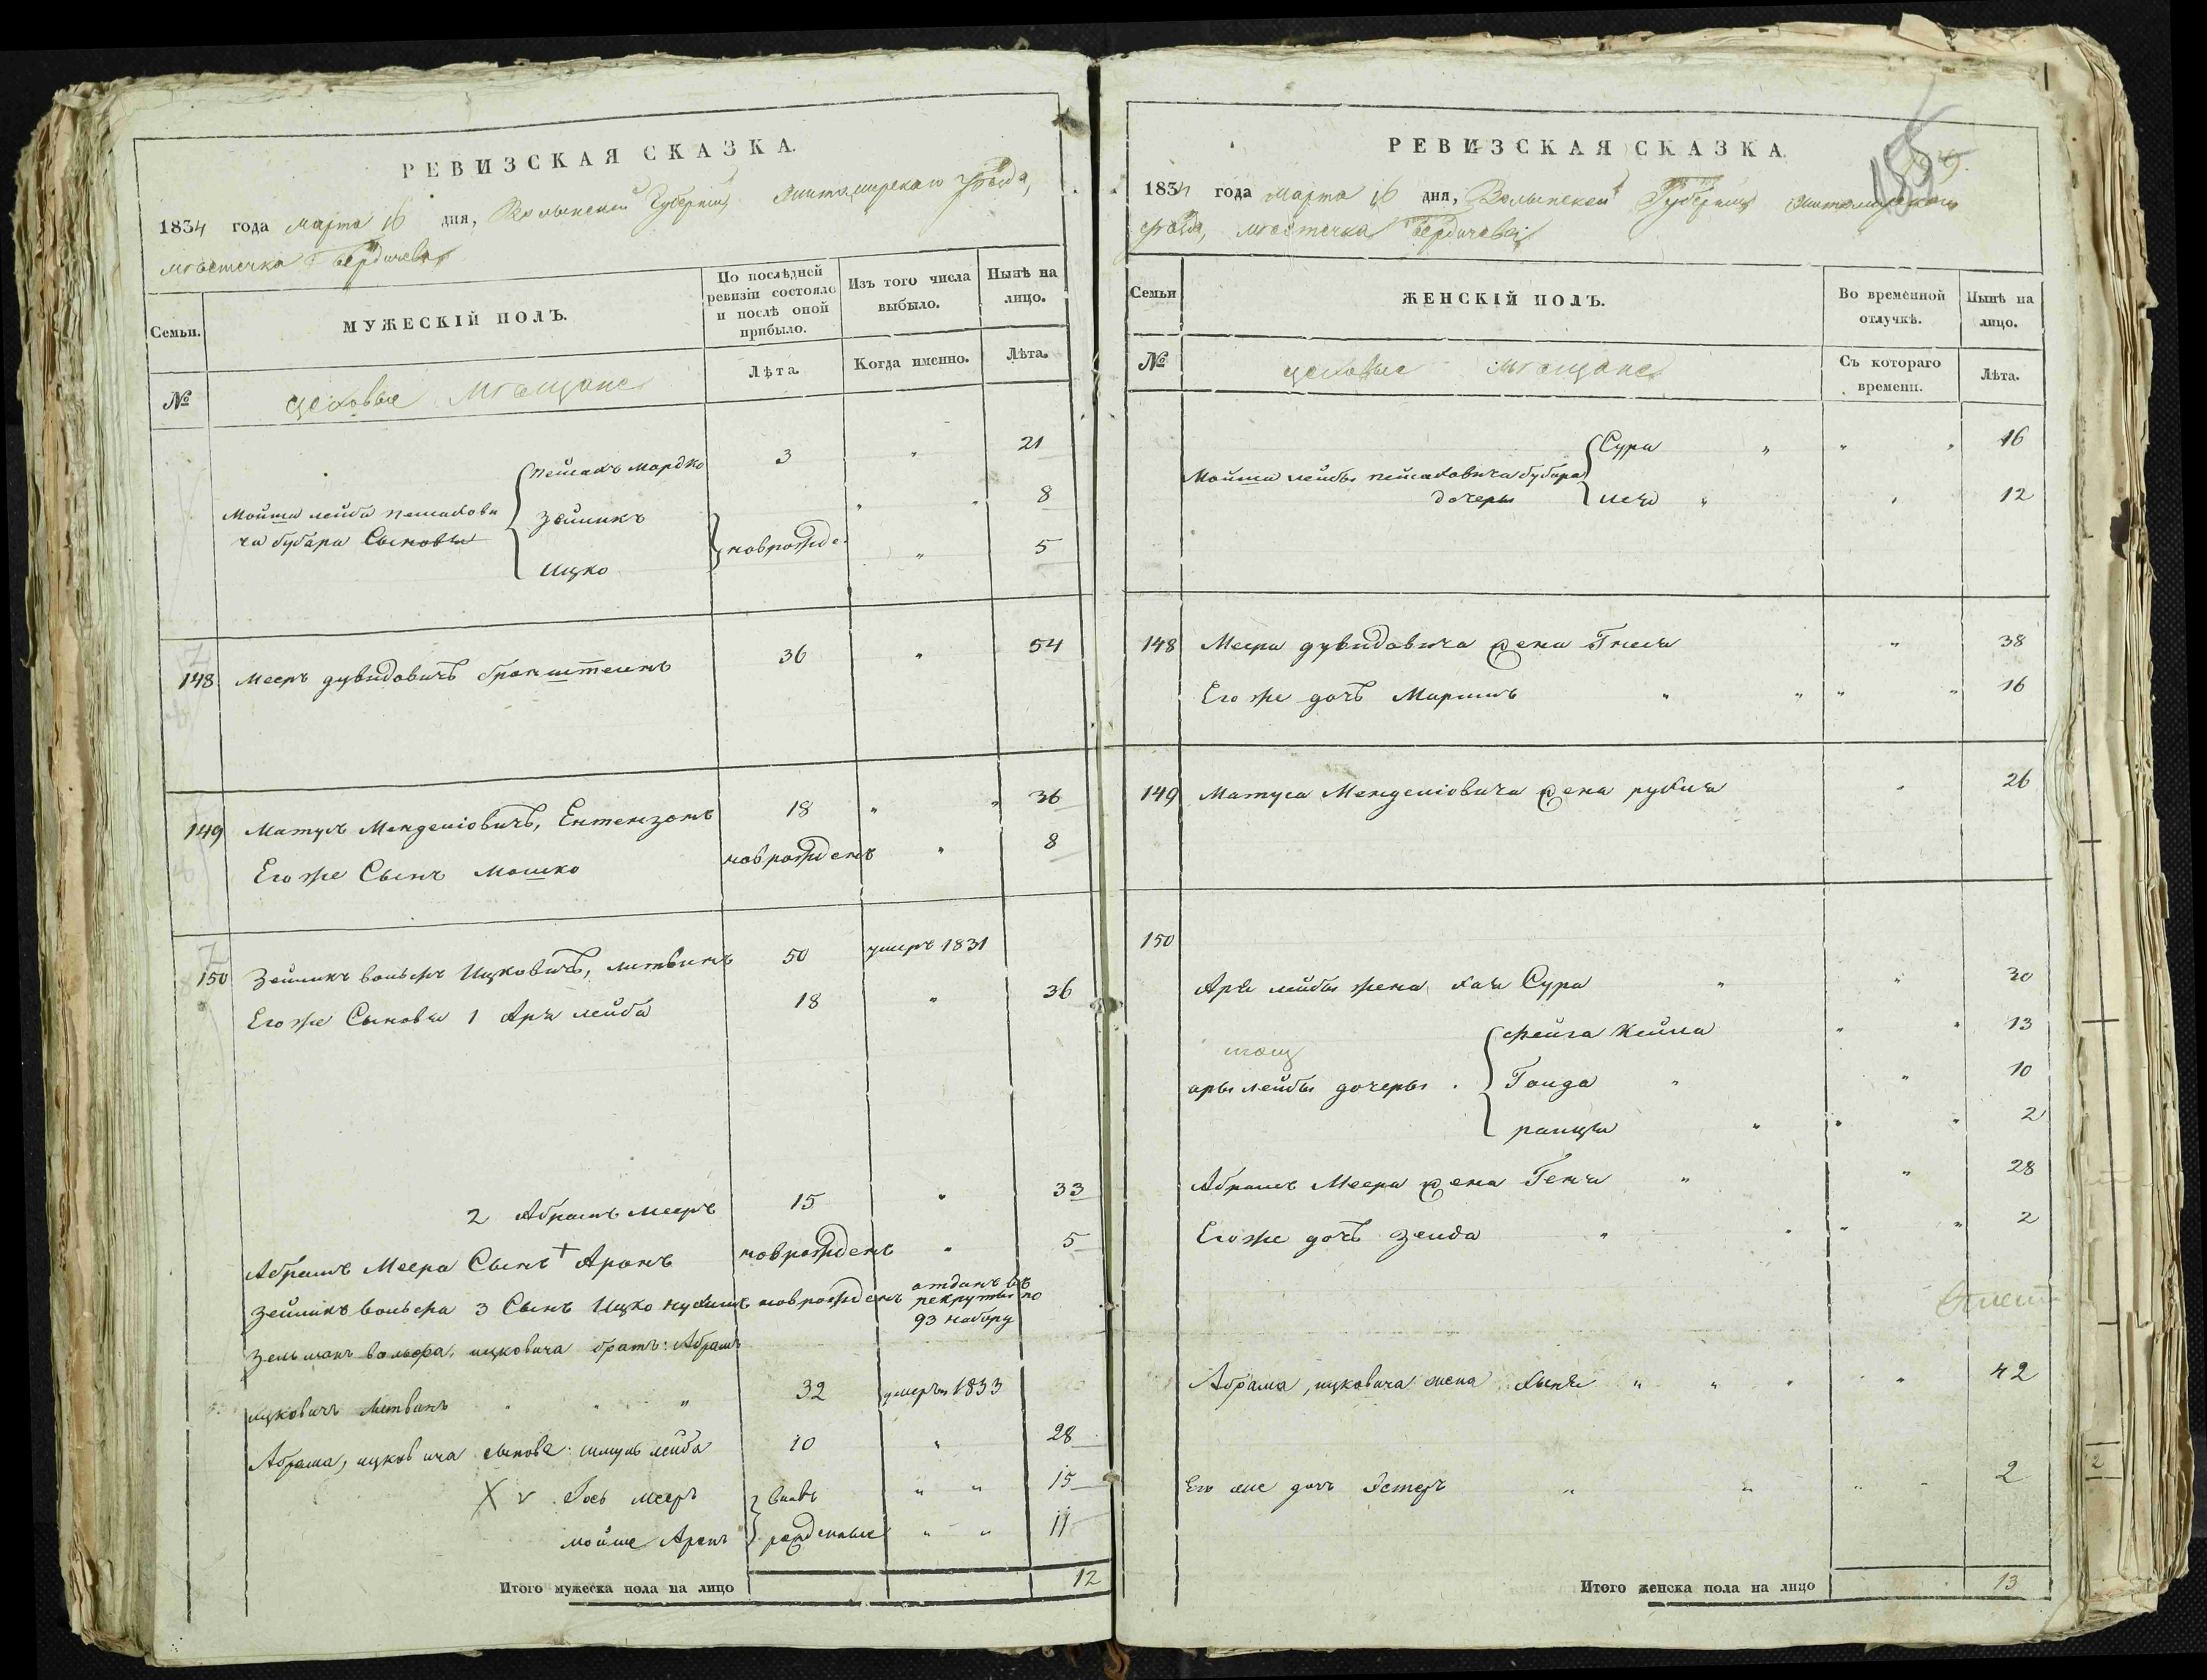 РЕВИЗСКАЯ СКАЗКА.
1834 года марта 16 дня, Волынской Губернии, Житомирскаго уѣзда,
мѣстечка Бердичева
Семьи.
МУЖЕСКІЙ ПОЛЪ.
По послѣдней ревизіи состояло и послѣ оной прибыло.
Изъ того числа выбыло.
Нынѣ на лицо.
№
цеховые мѣщане
Лѣта
Когда именно.
Лѣта.
Пейсахъ Мордко 3 " 21
Мошка лейба пейсахови
ча бубара Сыновья
Зейликъ " " 8
новрожде.
Ицко " 5
148 Мееръ дувидовичъ бронштеинъ 36 " 54
149 Матусъ Менделіовичъ, Ентензонъ 18 " " 36
Его же Сынъ Мошко новрожденъ " 8
150 Зейликъ вольфъ Ицковичъ, литвинъ 50 умеръ 1831
Его же Сыновья 1 Аръя лейба 18 " 36
2 Абрамъ мееръ 15 " 33
Абрамъ Меера Сынъ + Аронъ новрожденъ " 5
Зейликъ вольфа 3 Сынъ Ицко нухимъ новрожденъ отданъ въ
рекруты по
93 набору
Зельманъ вольфа, ицковича братъ: Абрамъ
ицковичъ литвинъ " " " 32 умеръ 1833
Абрама, ицковича сынове: шмуль лейба 10 " 28
X v Іось мееръ " " 15
вновь
рожденные
мойше Аронъ " " 11
Итого мужеска пола на лицо 12
РЕВИЗСКАЯ СКАЗКА
155
1834 года марта 16 дня, Волынской Губерніи Житомирскаго
уѣзда, мѣстечка Бердичева
Семьи
ЖЕНСКІЙ ПОЛЪ.
Во временной отлучкѣ.
Нынѣ на лицо.
№
цеховые мѣщане
Съ котораго времени.
Лѣта.
Сура " " " 16
Мошка лейбы пейсаховича бубара
дочеры
" " 12
148 Меера дувидовича жена Гнеся " 38
Его же дочъ Маримъ " " " " 16
149 Матуса Менделіовича жена рухля " 26
150
Аръя лейбы жена хая Сура " " 30
Фейга Кейла " " 13
ары лейбы дочеры .
Голда " " 10
ранця " " " 2
Абрамъ Меера жена Геня " " 28
Его же дочъ Зелда " " " " 2
Абрама, ицковича жена хыня " " " " 42
Его же дочъ Эстеръ " " " " 2
Итого женска пола на лицо 13